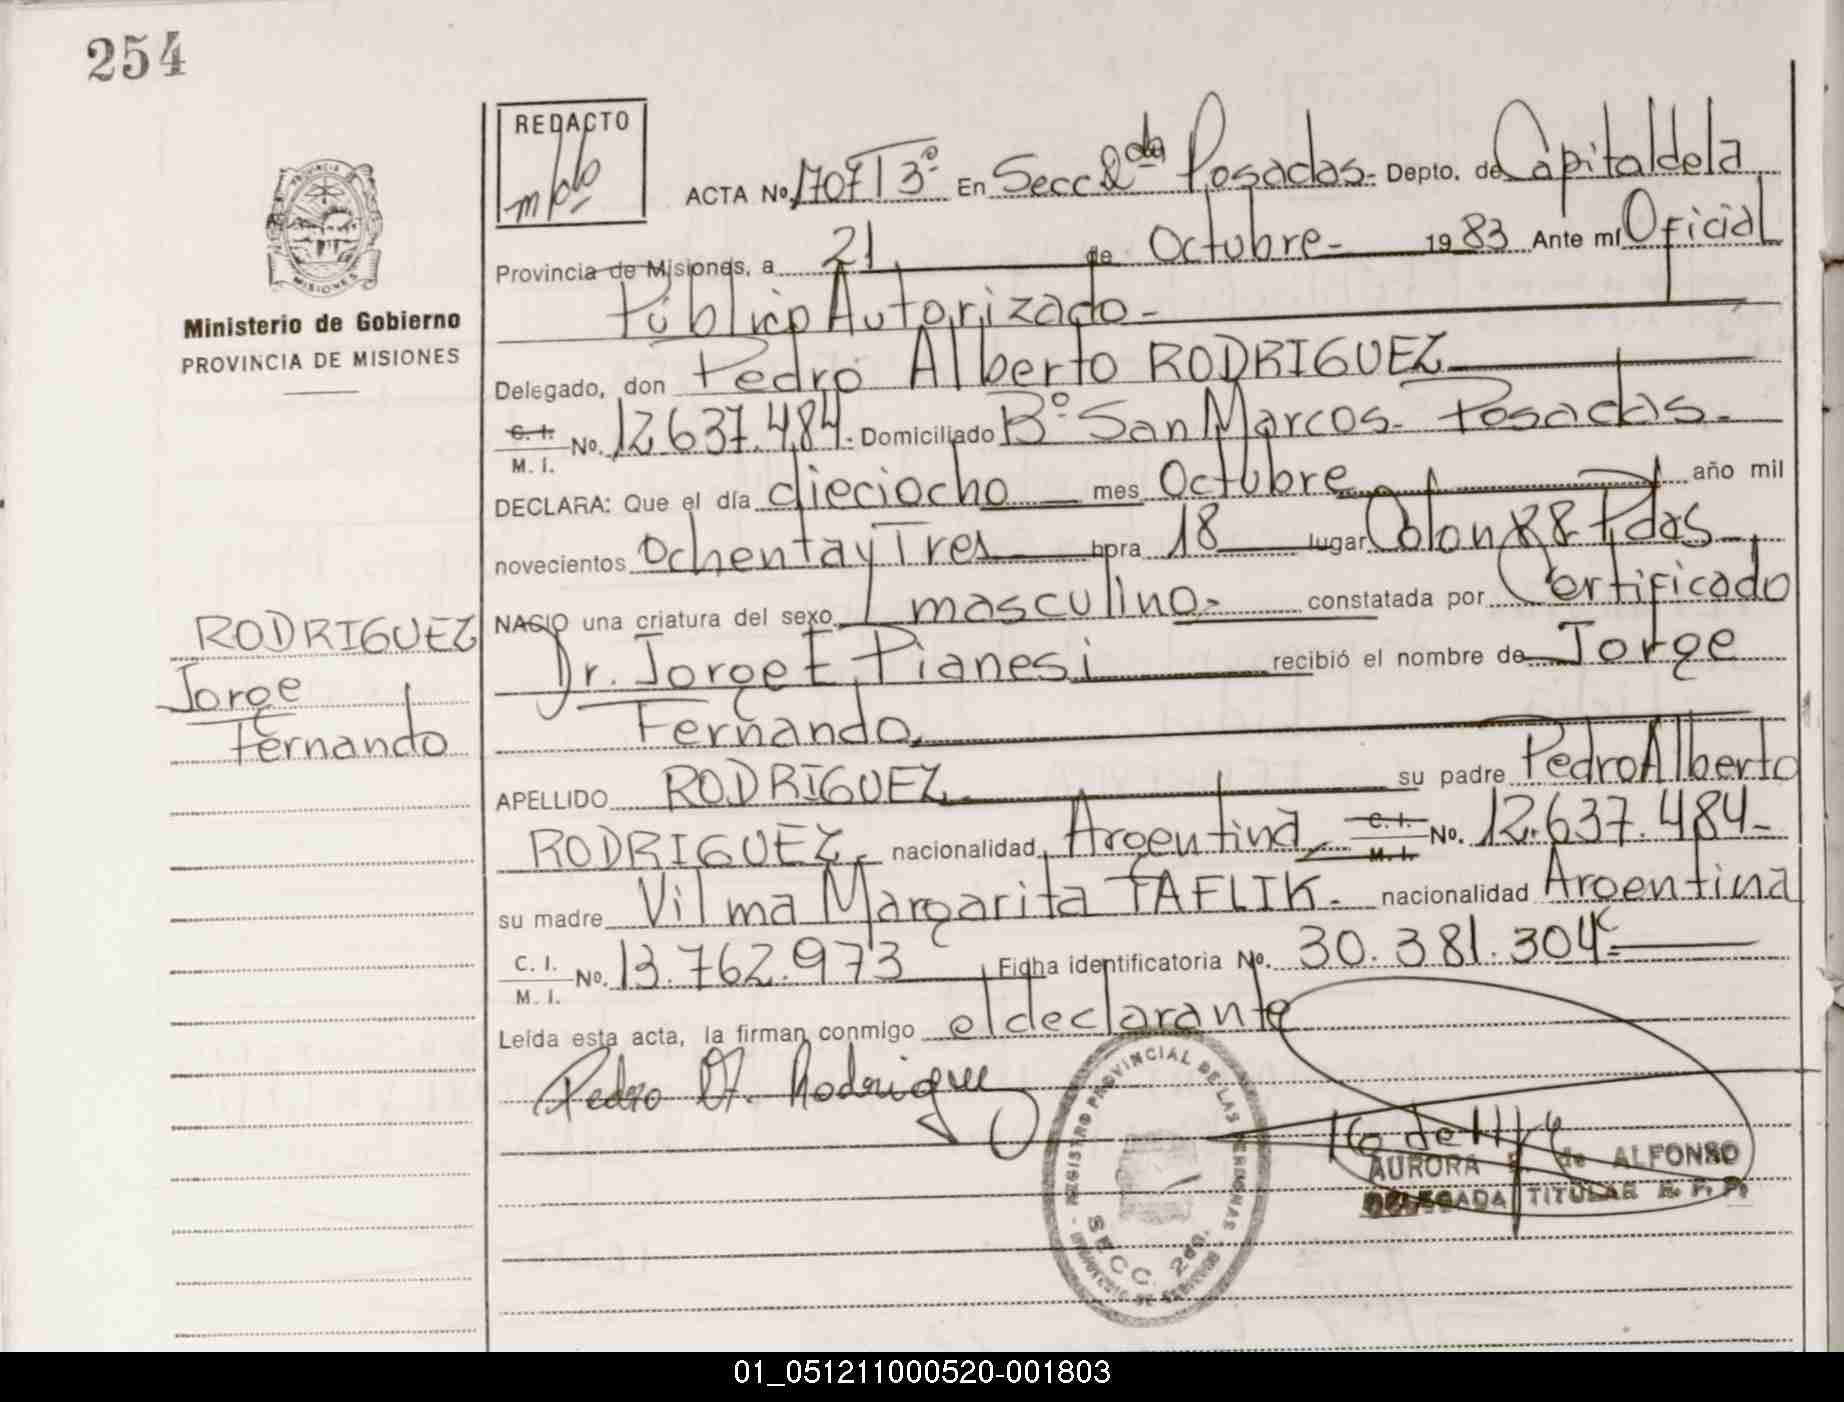 254
REDACTO
PROVINCIA DE
MISIONES
Ministerio de Gobierno
PROVINCIA DE MISIONES
ACTA No. 1707 T 3º En Secc 2da Posadas. Depto. de Capital de la
Provincia de Misiones, a 21 de Octubre 1983 Ante mí Oficial
Público Autorizado
Delegado, don Pedro Alberto RODRIGUEZ
C. I.
M. I. No. 12.637.484. Domiciliado Bº San Marcos. Posadas.
DECLARA: Que el día dieciocho mes Octubre año mil
novecientos ochenta y Tres hora 18 lugar Colon Pdas
NACIO una criatura del sexo masculino constatada por Certificado
Dr. Jorge E. Pianesi recibió el nombre de Jorge
Fernando
RODRIGUEZ
Jorge
Fernando
APELLIDO RODRIGUEZ su padre Pedro Alberto
RODRIGUEZ nacionalidad Argentina C. I. M. I. No. 12.637.484
su madre Vilma Margarita TAFLIK. nacionalidad Argentina
C. I.
M. I. No. 13.762.973 Ficha identificatoria No. 30.381.304
Leída esta acta, la firman conmigo el declarante
Pedro A. Rodriguez
REGISTRO PROVINCIAL DE LAS PERSONAS
SECC. 2da.
AURORA de ALFONSO
DELEGADA TITULAR R. P. P.
01_051211000520-001803